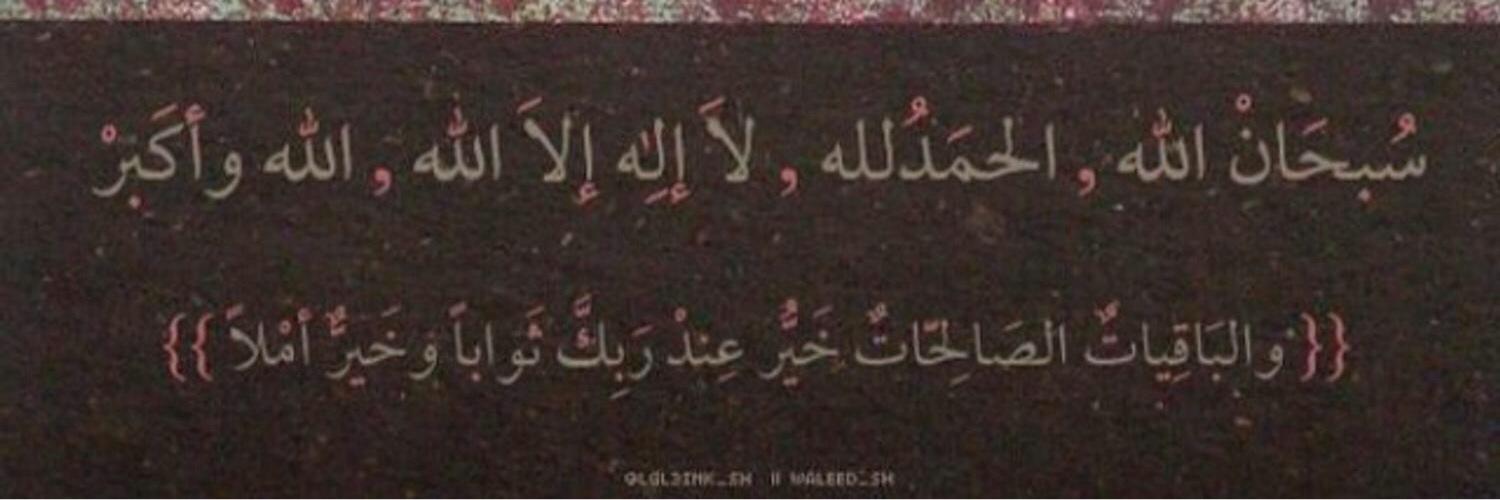 سُبحَانْ الله , الحمَدُلله , لاَ إلٰه إلاَ الله , الله وأكَبرْ
{{ والبَاقِياتٌ الصَالِحّاتٌ خَيرٌّ عِندْ رَبِكَّ ثَواباً وَخَيرٌّ أمْلاً }}